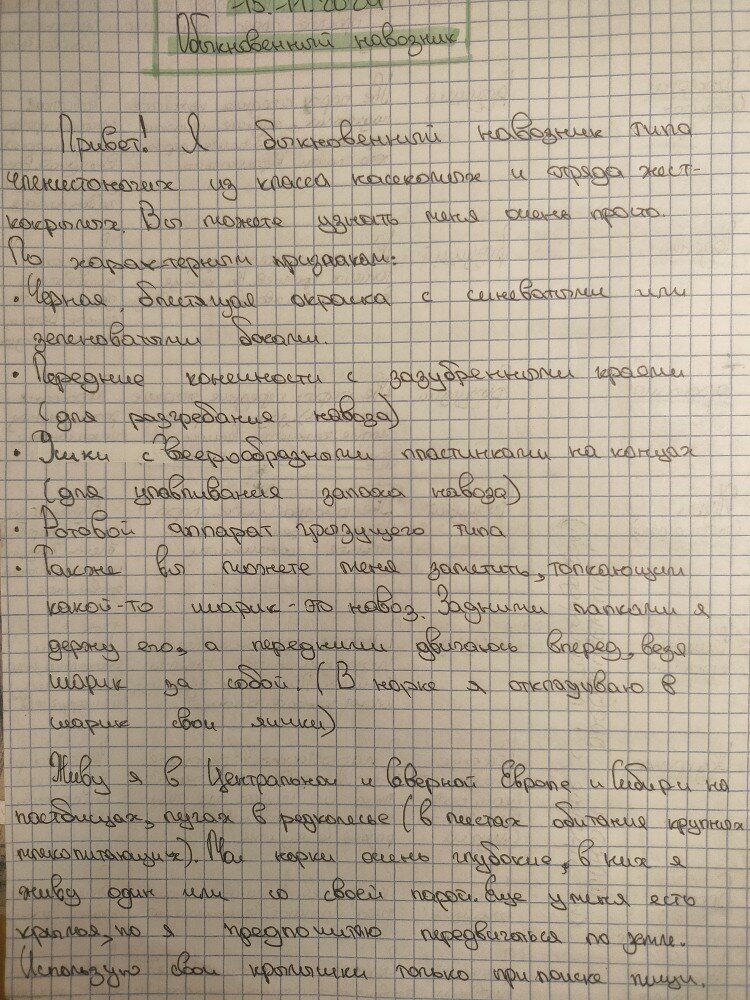 -15.-11.2024
Обыкновенный навозник
Привет! Я обыкновенный навозник типа
членистоногих из класса насекомых и отряда жест-
кокрылых. Вы можете узнать меня очень просто.
По характерным признакам:
• Черная, блестящая окраска с синеватыми или
зеленоватыми боками.
• Передние конешности с зазубренными краями
(для разгребания навоза)
• Усики с веерообразными пластинками на концах
(для улавливания запаха навоза)
• Ротовой аппарат грызущего типа
• Также вы можете меня заметить, толкающим
какой-то шарик - это навоз. Задними лапками я
держу его, а передними двигаюсь вперед, везя
шарик за собой. (В норке я откладуваю в
шарик свои яички)
Живу я в Центральной и Северной Европе и Сибири на
пастбищах, лугах в редколесье (в местах обитания крупных
млекопитающих). Мои норки очень глубокие, в них я
живу один или со своей парой. Еще у меня есть
крылья, но я предпочитаю передвигаться по земле.
Использую свои крылышки только при поиске пищи.